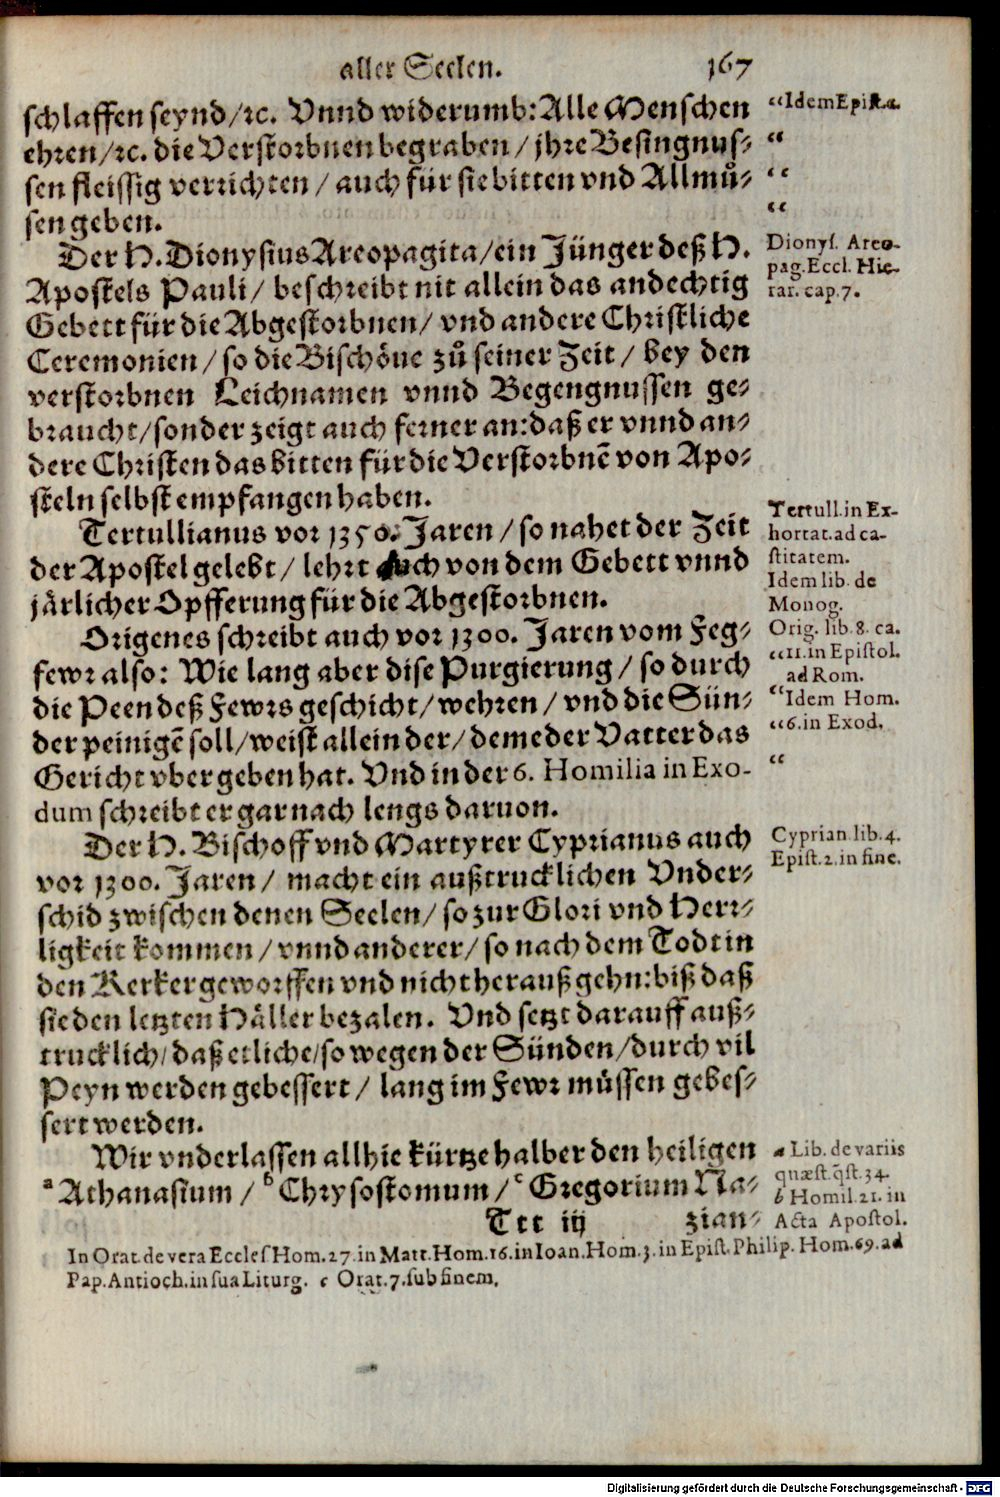 aller Seelen. 167
schlaffen seynd/ꝛc. Vnnd widerumb: Alle Menschen
ehren/ꝛc. die Verstorbnen begraben / jhre Besingnus-
sen fleissig verrichten / auch für sie bitten vnd Allmů-
sen geben.
“Idem Epist. 1.
“
“
“
Der H. Dionysius Areopagita/ein Jünger deß H.
Apostels Pauli/ beschreibt nit allein das andechtig
Gebett für die Abgestorbnen/ vnd andere Christliche
Ceremonien / so die Bischöue zů seiner Zeit / bey den
verstorbnen Leichnamen vnnd Begengnussen ge-
braucht/sonder zeigt auch ferner an: daß er vnnd an-
dere Christen das bitten für die Verstorbnē von Apo-
steln selbst empfangen haben.
Dionys. Areo-
pag. Eccl. Hie-
rar. cap. 7.
Tertullianus vor 1350. Jaren / so nahet der Zeit
der Apostel gelebt / lehrt auch von dem Gebett vnnd
järlicher Opfferung für die Abgestorbnen.
Tertull. in Ex-
hortat. ad ca-
stitatem.
Idem lib. de
Monog.
Origenes schreibt auch vor 1300. Jaren vom Feg-
fewr also: Wie lang aber dise Purgierung / so durch
die Peen deß Fewrs geschicht/wehren / vnd die Sün-
der peinigē soll/weist allein der/ deme der Vatter das
Gericht vbergeben hat. Vnd in der 6. Homilia in Exo-
dum schreibt er gar nach lengs daruon.
Orig. lib. 8. ca.
“11. in Epistol.
ad Rom.
“Idem Hom.
“6. in Exod.
“
Der H. Bischoff vnd Martyrer Cyprianus auch
vor 1300. Jaren / macht ein außtrucklichen Vnder-
schid zwischen denen Seelen/ so zur Glori vnd Herr-
ligkeit kommen / vnnd anderer/ so nach dem Todt in
den Kerker geworffen vnd nicht herauß gehn: biß daß
sie den letzten Häller bezalen. Vnd setzt darauff auß-
trucklich/ daß etliche/so wegen der Sünden/durch vil
Peyn werden gebessert / lang im Fewr müssen gebes-
sert werden.
Cyprian. lib. 4.
Epist. 2. in fine.
Wir vnderlassen allhie kürtze halber den heiligen
ᵃ Athanasium / ᵇ Chrysostomum / ᶜ Gregorium Na-
Ttt iij zian-
a Lib. de variis
quæst. q̃st. 34.
b Homil. 21. in
Acta Apostol.
In Orat. de vera Eccles Hom. 27. in Matt. Hom. 16. in Ioan. Hom. 3. in Epist. Philip. Hom. 69. ad
Pap. Antioch. in sua Liturg. c Orat. 7. sub finem.
Digitalisierung gefördert durch die Deutsche Forschungsgemeinschaft - DFG